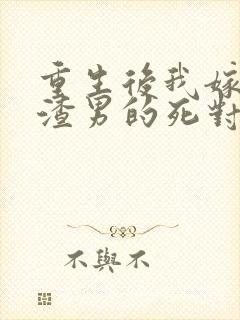 重生後我嫁
渣男的死對
不與不